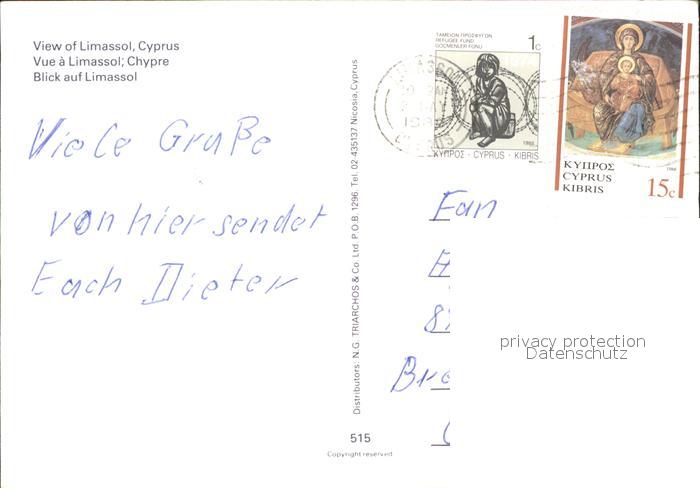 View of Limassol, Cyprus
Vue à Limassol; Chypre
Blick auf Limassol
Viele Gruße
von hier sendet
Euch Dieter
Distributors: N.G. TRIARCHOS & Co. Ltd P.O.B. 1296. Tel. 02-435137 Nicosia, Cyprus
515
Copyright reserved
ΤΑΜΕΙΟΝ ΠΡΟΣΦΥΓΩΝ
REFUGEE FUND
GÖÇMENLER FONU
1c
1974
1988
ΚΥΠΡΟΣ - CYPRUS - KIBRIS
ΚΥΠΡΟΣ
CYPRUS
KIBRIS
1988
15c
Fam
privacy protection
Datenschutz